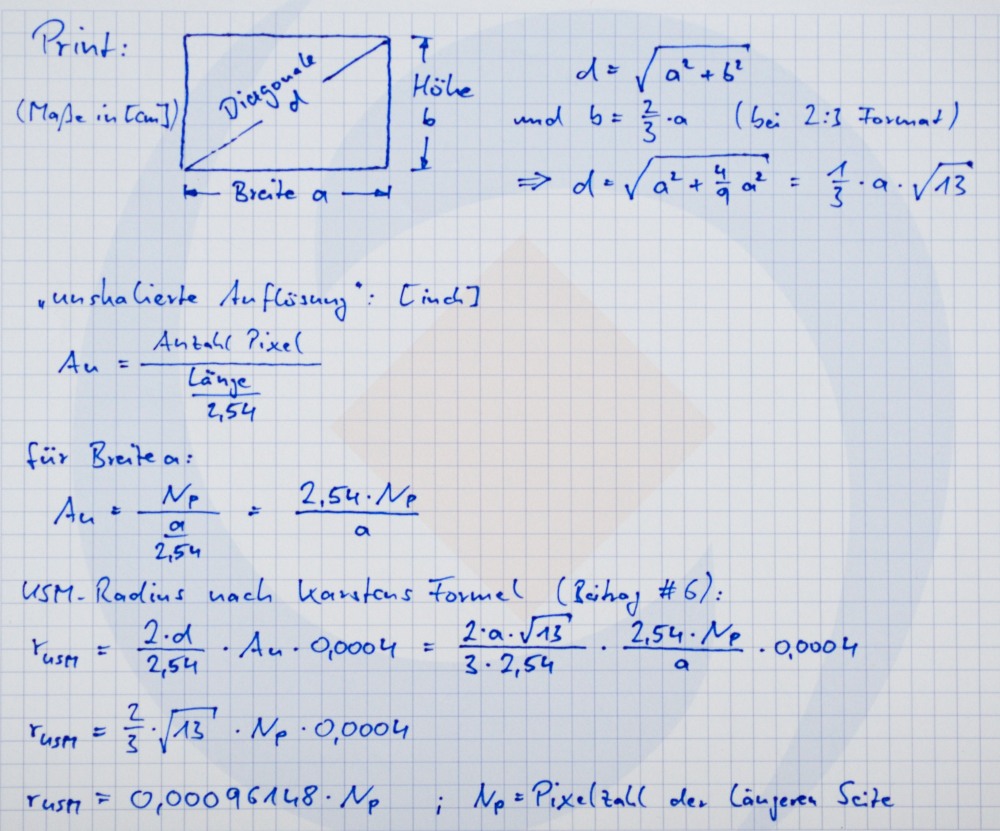 Print:
(Maße in [cm])
Diagonale
d
Höhe
b
Breite a
d = √(a² + b²)
und b = 2/3 · a (bei 2:3 Format)
⇒ d = √(a² + 4/9 a²) = 1/3 · a · √13
„unskalierte Auflösung“: [inch]
Au = Anzahl Pixel / (Länge / 2,54)
für Breite a:
Au = Np / (a / 2,54) = 2,54 · Np / a
USM-Radius nach Karstens Formel (Beitrag #6):
rUSM = 2·d / 2,54 · Au · 0,0004 = 2·a·√13 / 3·2,54 · 2,54·Np / a · 0,0004
rUSM = 2/3 · √13 · Np · 0,0004
rUSM = 0,00096148 · Np ; Np = Pixelzahl der längeren Seite